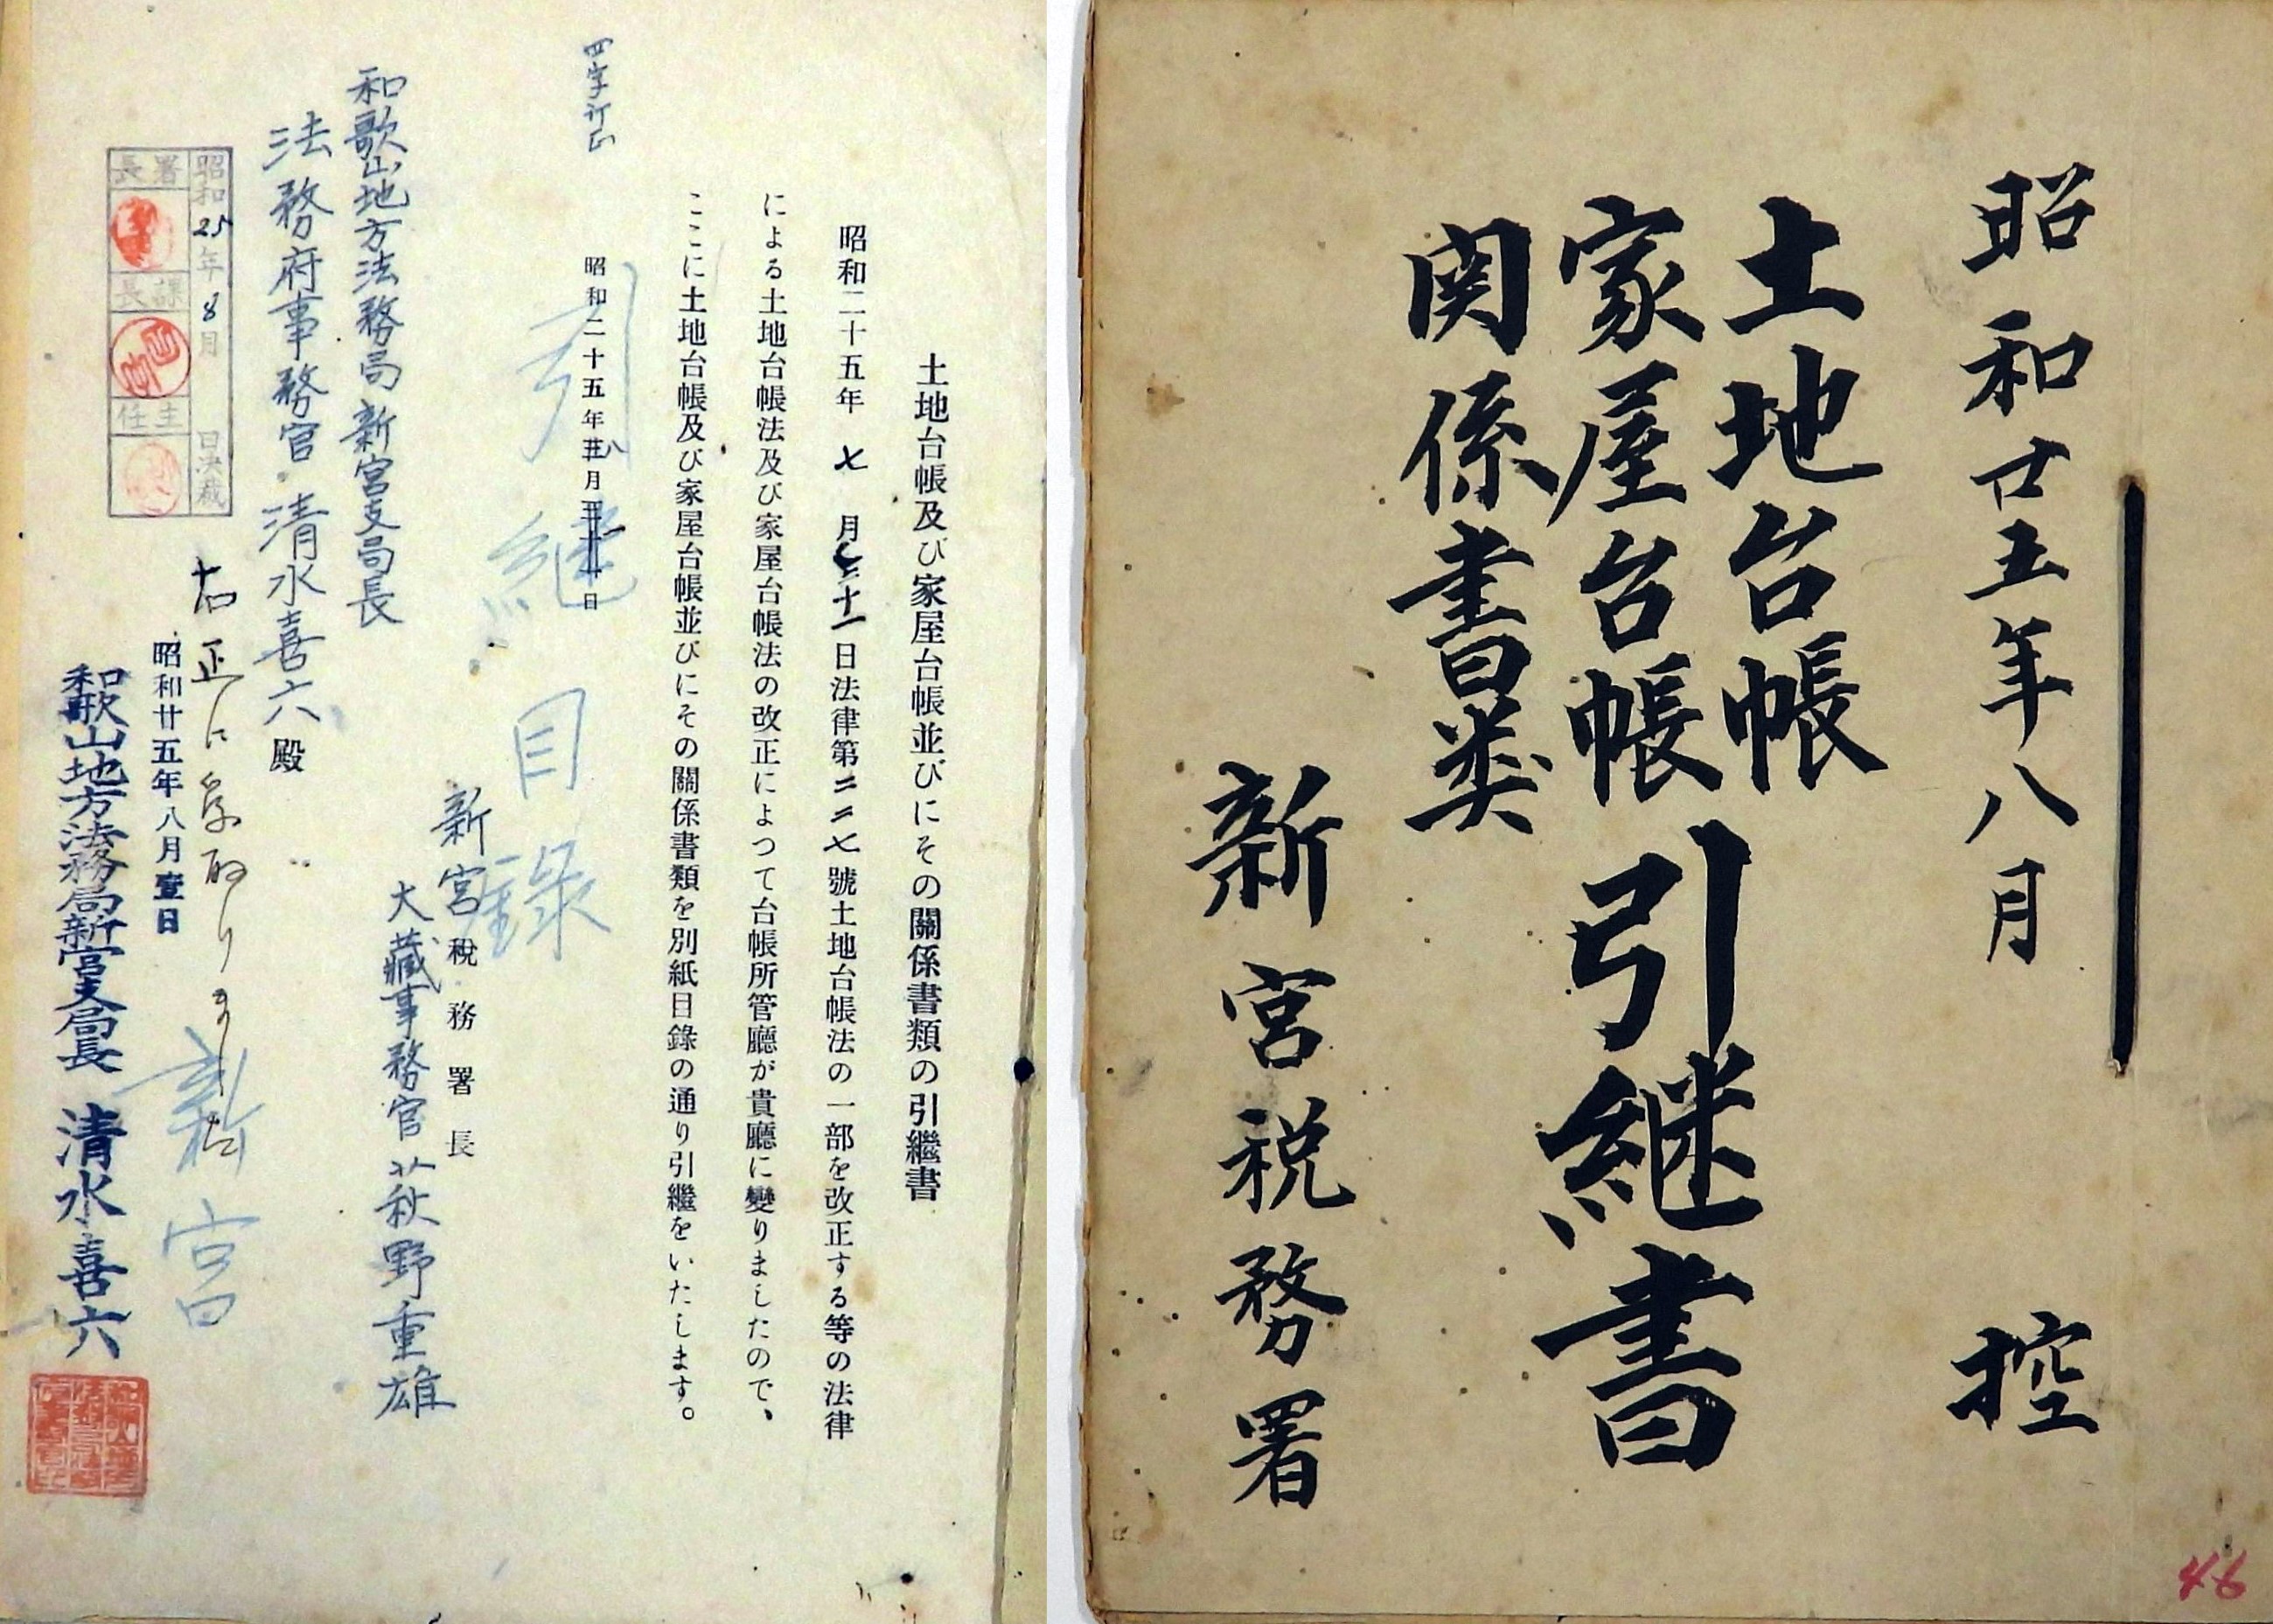 昭和廿五年八月　控
土地台帳
家屋台帳
関係書類
引継書
新宮税務署
46
土地台帳及び家屋台帳並びにその關係書類の引繼書
昭和二十五年七月三十一日法律第二二七號土地台帳法の一部を改正する等の法律
による土地台帳法及び家屋台帳法の改正によつて台帳所管廳が貴廳に變りましたので、
ここに土地台帳及び家屋台帳並びにその關係書類を別紙目錄の通り引繼をいたします。
四字訂正
昭和二十五年八月一日
引継目録
新宮稅務署長
大藏事務官 萩野重雄
和歌山地方法務局新宮支局長
法務府事務官 清水喜六殿
昭和25年8月 日決裁
署長
課長
主任
右正に受取りました
新宮
昭和廿五年八月壹日
和歌山地方法務局新宮支局長 清水喜六